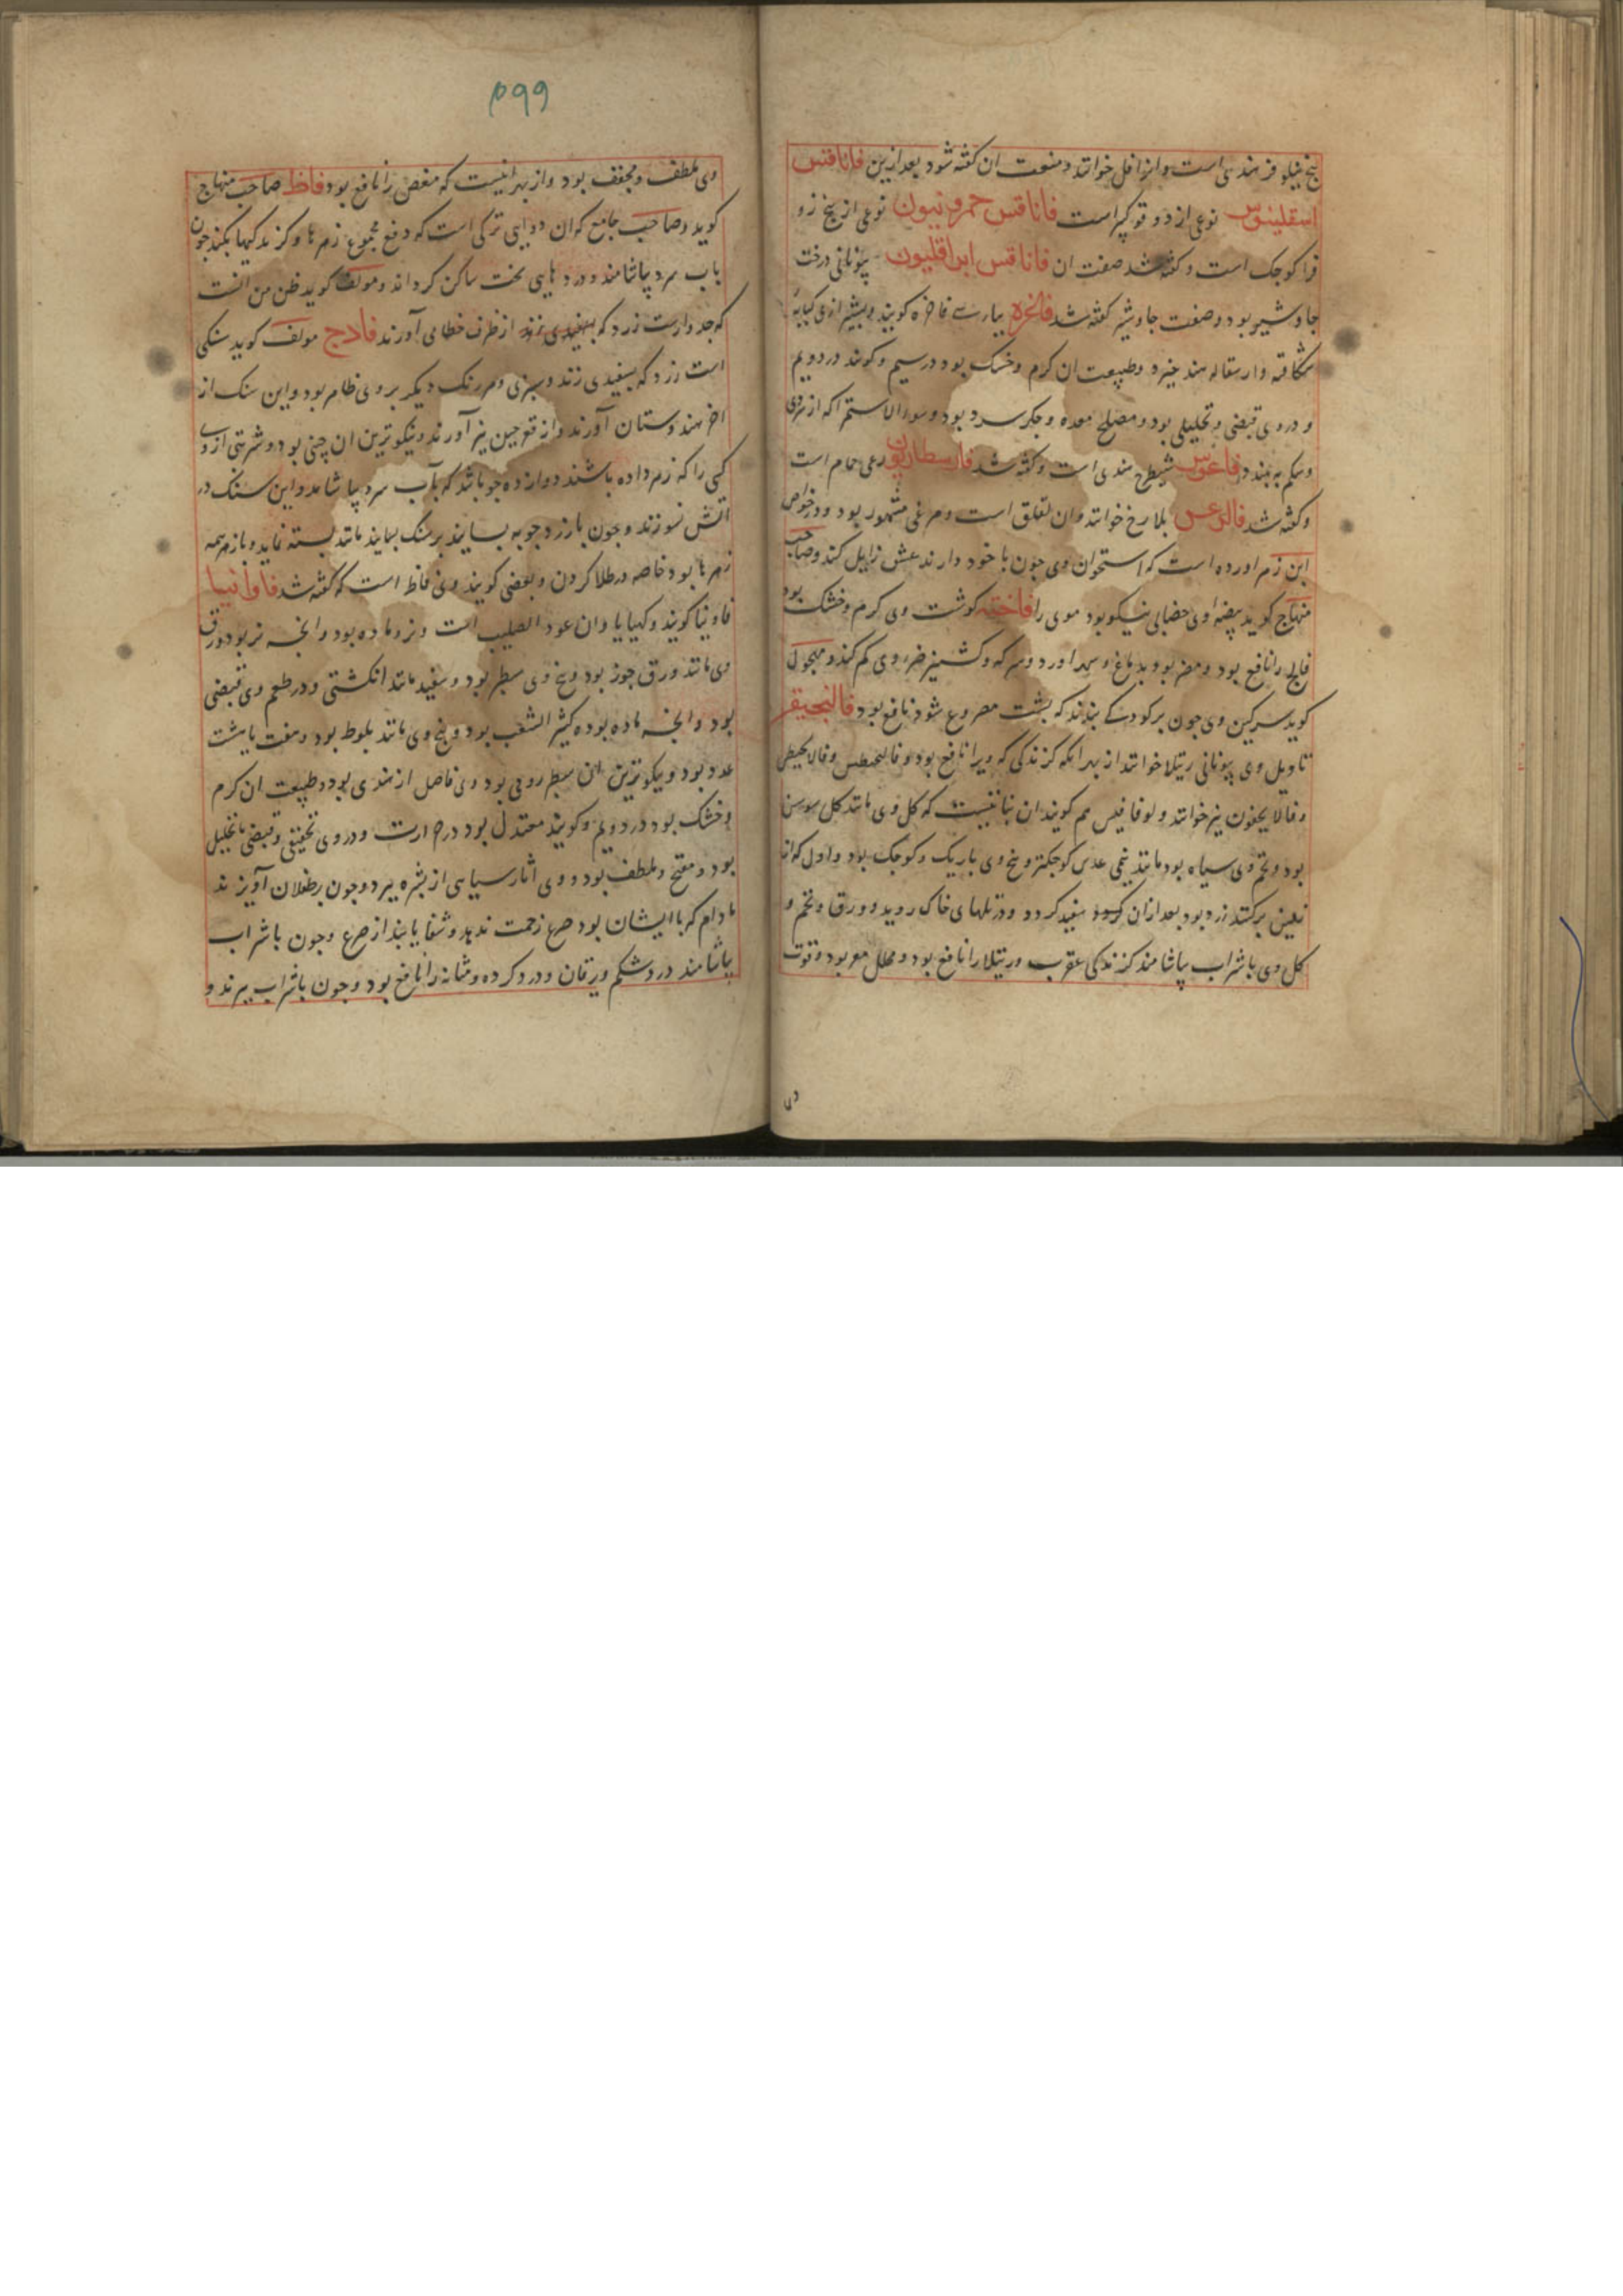 بیخ نیلوفر هندی است و انرا فل خوانند و منفعت ان کفته شود بعد ازین فاناقتس
اسقلینوس نوعی از دوقو کبیر است فاناقس حمرونیون نوعی از بیخ زو
فرا کوجک است و کفته شد صفت ان فاناقس ابراقلیون بیونانی درخت
جاوشیر بود و صفت جاوشیر کفته شد فاخره بپارسی فاخره کویند و بیشتر از وی
شکافته و از سقاله هند خیزد و طبیعت ان کرم و خشک بود در سیم و کویند در دویم
و در وی قبضی و تحلیلی بود و مصلح معده و جکر سرد بود و سوء الاستمرا که از سردی
وشکم به بندد فاغوس شیطرج هندی است و کفته شد فارسطاریون رعی حمام است
و کفته شد فالرعس بلارخ خوانند وان لقلق است ومرغی مشهور بود ودر خواص
ابن زهر اورده است که استخوان وی جون با خود دارند عشق زایل کند وصاحب
منهاج کوید بیضه وی خضابی نیکو بود موی را فاخته کوشت وی کرم و خشک بود
فالج را نافع بود ومضر بود بدماغ و سهر اورد و سرکه و کشنیز ضرر وی کم کند و مجهول
کوید سرکین وی جون بر کودکی بندند که بشت مصروع شود نافع بود فالنجیقر
تاویل وی بیونانی رتیلا خوانند از بهر انکه کزندکی که ویرا نافع بود و فالنجیطس و فالانجیطس
و فالایجفون نیز خوانند و لوقافیس هم کویند ان نباتیست که کل وی مانند کل سوسن
بود و تخم وی سیاه بود مانند نیمی عدس کوجکتر و بیخ وی باریک و کوجک بود و اول که از
زمین برکنند زرد بود بعد ازان سفید کردد و در تلهای خاک روید و ورق و تخم و
کل وی با شراب بیاشامند کزندکی عقرب و رتیلا را نافع بود و محلل مغص بود و قوت
وی
۵۹۹
وی ملطف و مجفف بود و از بهر انیست که مغص را نافع بود فاظ صاحب منهاج
کوید و صاحب جامع که ان دوایی ترکی است که دفع مجموع زهرها و کزندکیها بکند جون
باب سرد بیاشامند و دردهایی سخت ساکن کرداند و مولف کوید ظن من انست
که جدوارست زرد که بسفیدی زند از طرف خطای آورند فادج مولف کوید سنکی
است زرد که بسفیدی زند و سبزی و هر رنک دیکر بر وی ظاهر بود و این سنک از
اخر هندوستان آورند و از قعر جین نیز آورند و نیکوترین ان چینی بود و شربتی از وی
کسی را که زهر داده باشند دوازده جو باشد که بآب سرد بیاشامد و این سنک در
اتش نسوزند و جون با زردجوبه بسایند بر سنک بسایند مانند بسته نماید و بازهر همه
زهرها بود خاصه در طلا کردن و بعضی کویند وی فاظ است که کفته شد فاوانیا
فاونیا کویند و کهیایا وان عود الصلیب است و نر و ماده بود و انجه نر بود ورق
وی مانند ورق جوز بود و بیخ وی سطبر بود و سفید مانند انکشتی و در طعم وی قبضی
بود و انجه ماده بود کثیر الشعب بود و بیخ وی مانند بلوط بود و هفت یا هشت
عدد بود و نیکوترین ان سطبر رومی بود وی فاضل از هندی بود و طبیعت ان کرم
وخشک بود در دویم و کویند معتدل بود در حرارت و در وی تجفیفی و قبضی با تحلیل
بود و مفتح و ملطف بود و وی اثار سیاهی از بشره ببرد و جون بر طفلان آویزند
مادام که با ایشان بود صرع زحمت ندهد و شفا یابند از صرع و جون با شراب
بیاشامند درد شکم و یرقان و درد کرده و مثانه را نافع بود و جون با شراب ببزند و